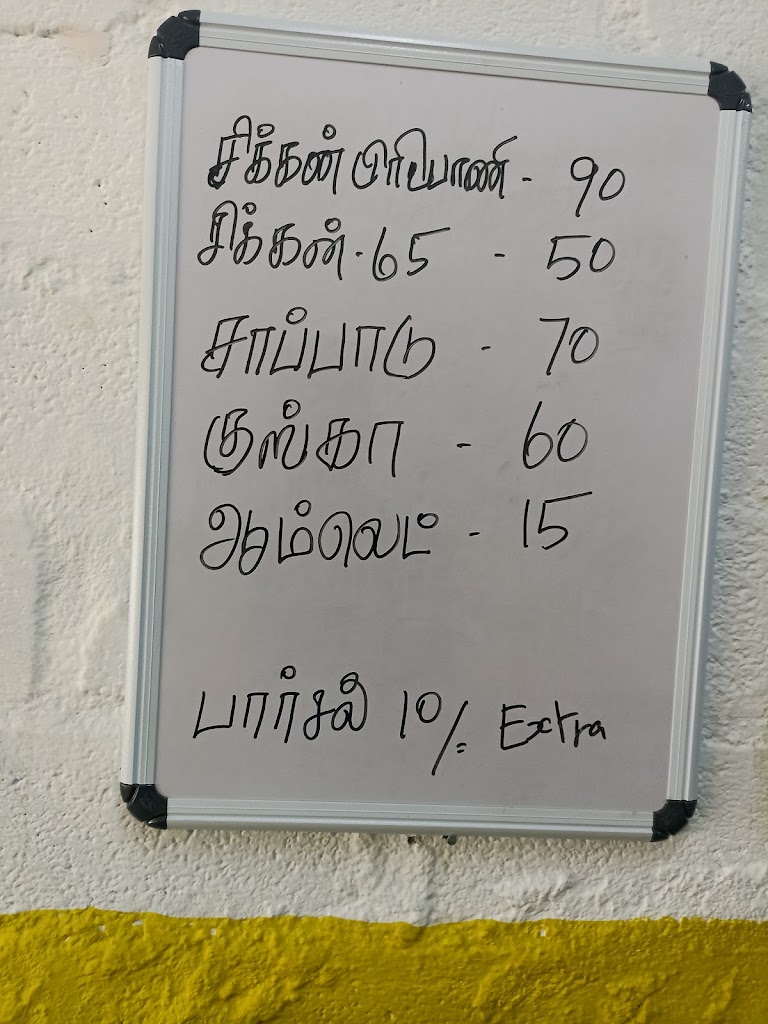 சிக்கன் பிரியாணி - 90
சிக்கன்-65 - 50
சாப்பாடு - 70
குஸ்கா - 60
ஆம்லெட் - 15
பார்சல் 10/= Extra